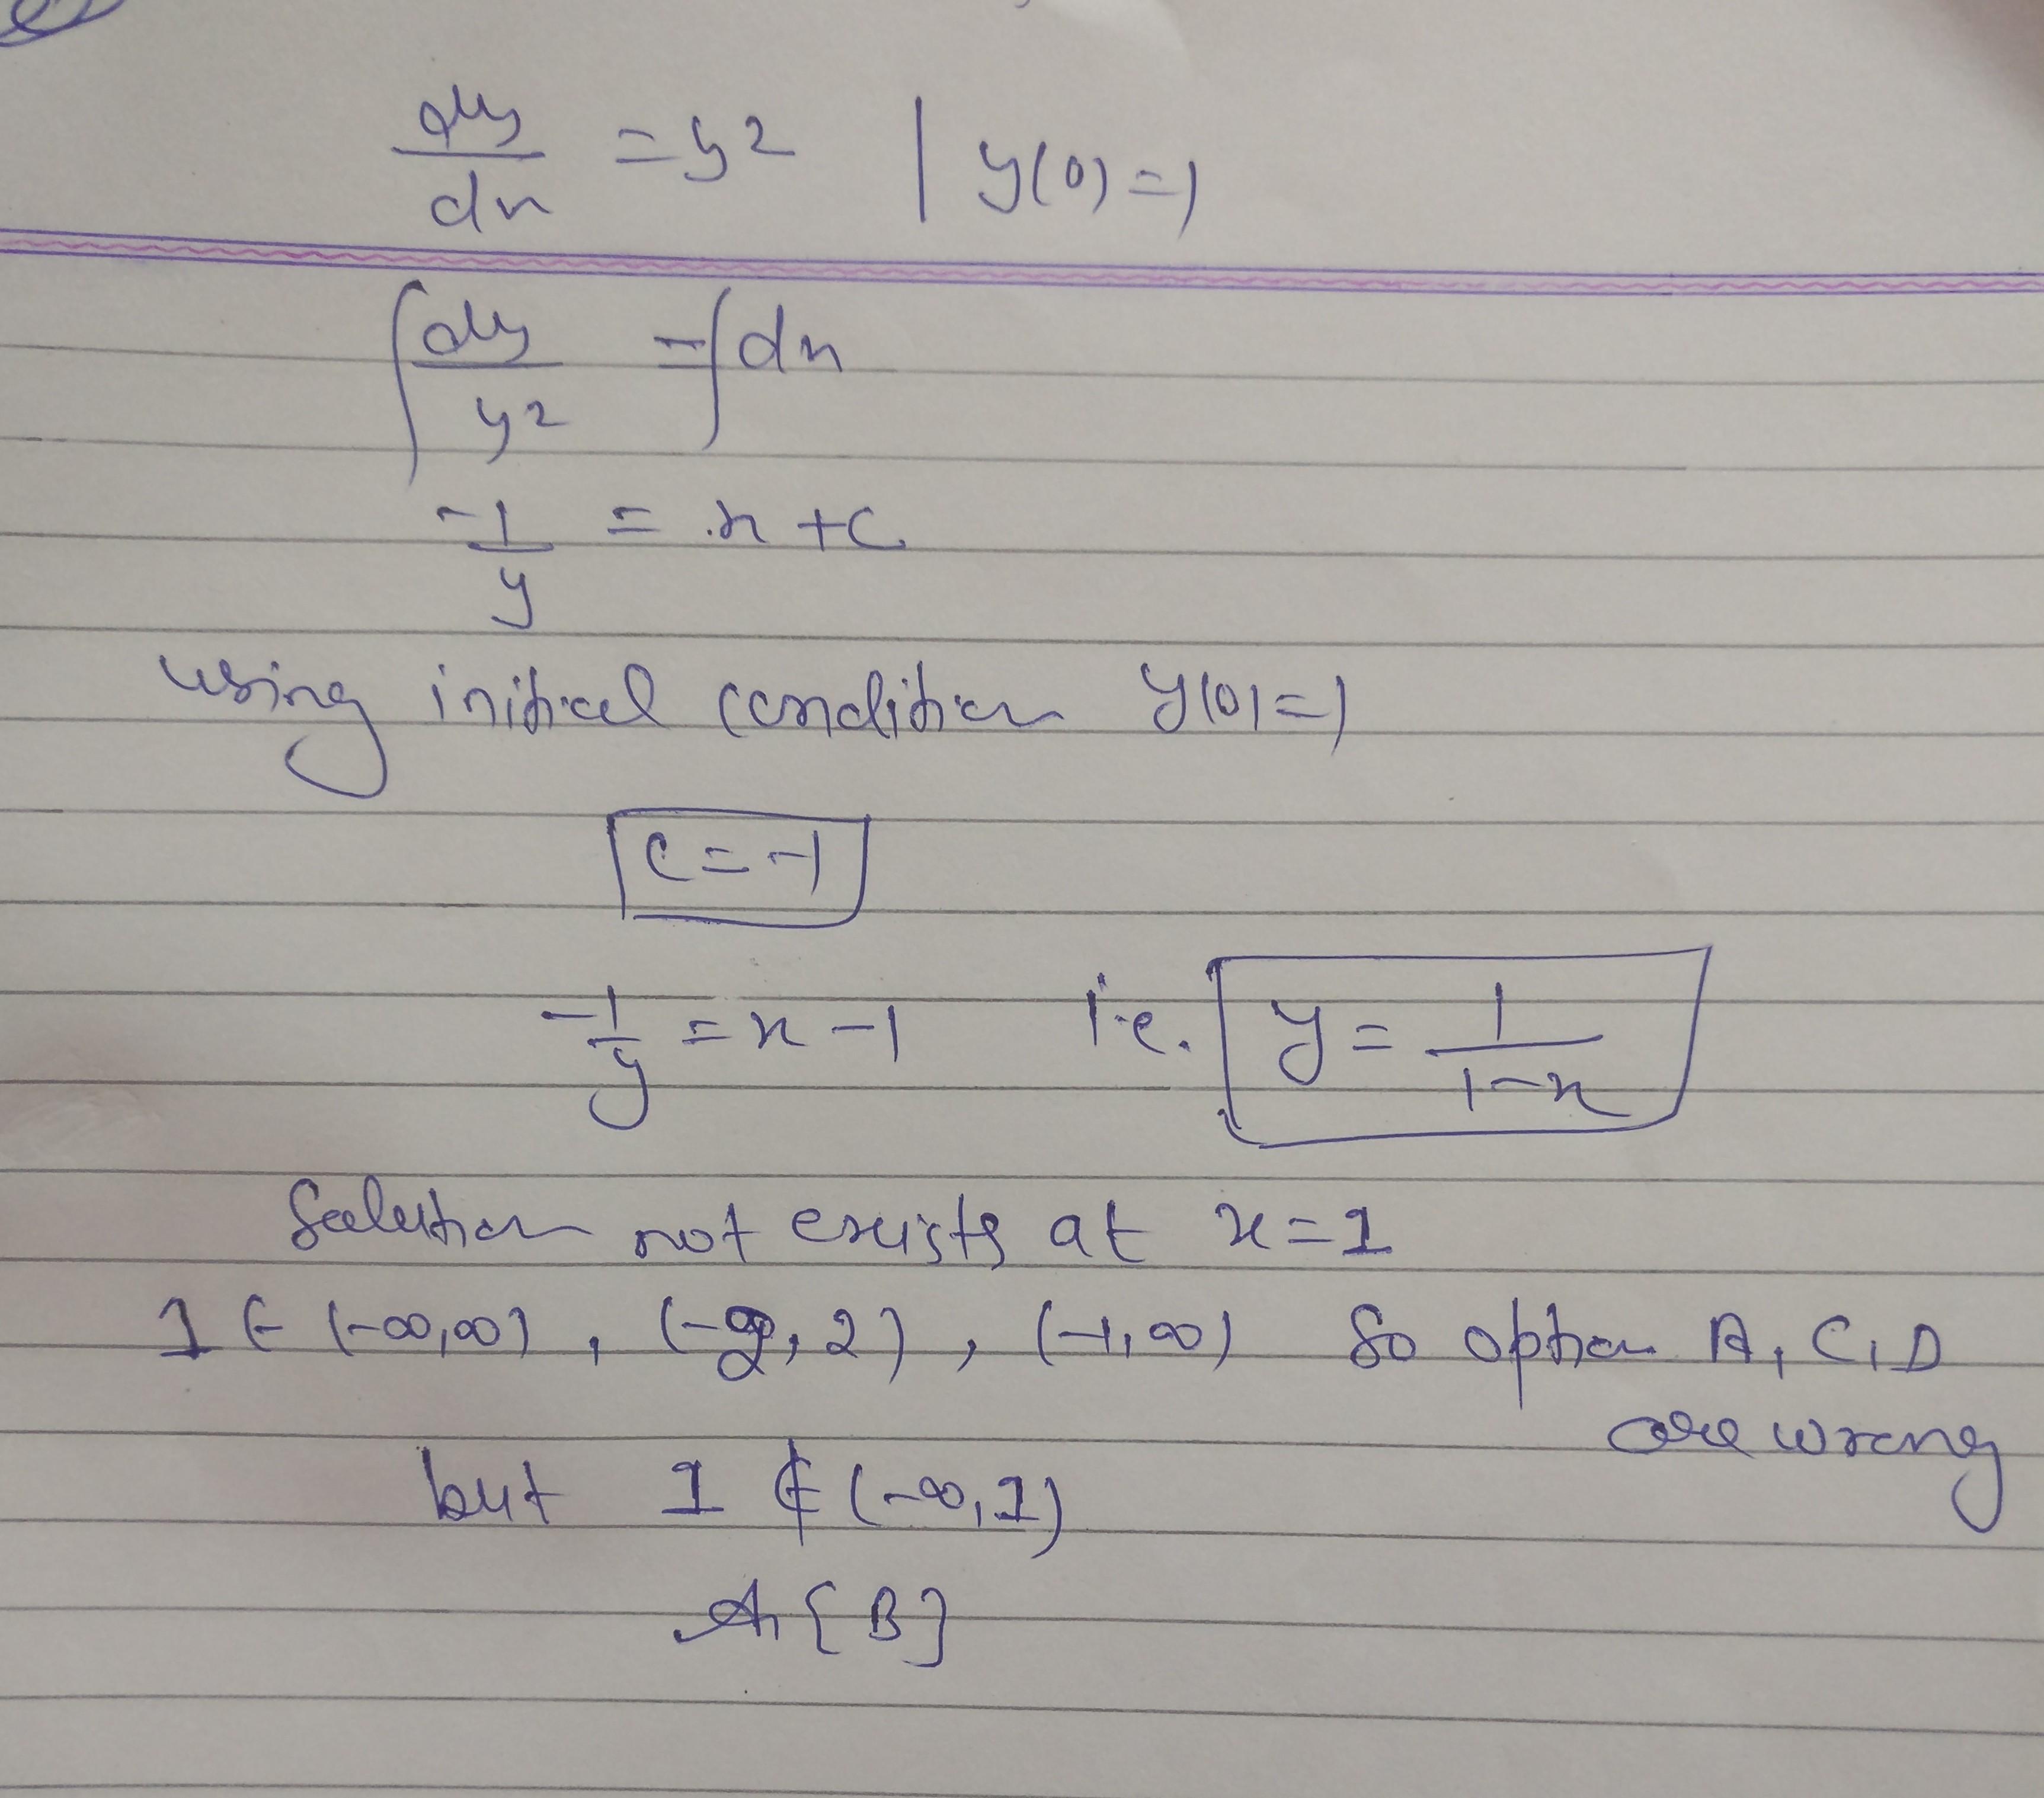 dy/dx = y² | y(0)=1
∫dy/y² = ∫dx
-1/y = x+c
using initial condition y(0)=1
c=-1
-1/y = x-1 i.e. y = 1/(1-x)
Solution not exists at x=1
1 ∈ (-∞,∞), (-2,2), (-1,∞) So option A, C, D
are wrong
but 1 ∉ (-∞,1)
{B}